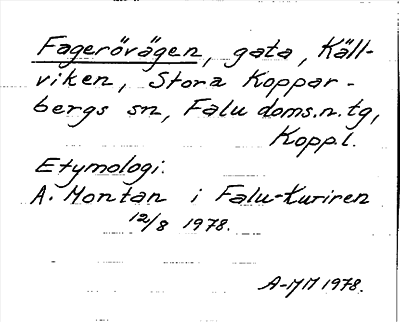 Fagerövägen, gata, Käll-
viken, Stora Koppar-
bergs sn, Falu doms.n.tg,
Koppl.
Etymologi.
A. Montan i Falu-Kuriren
12/8 1978.
1978.